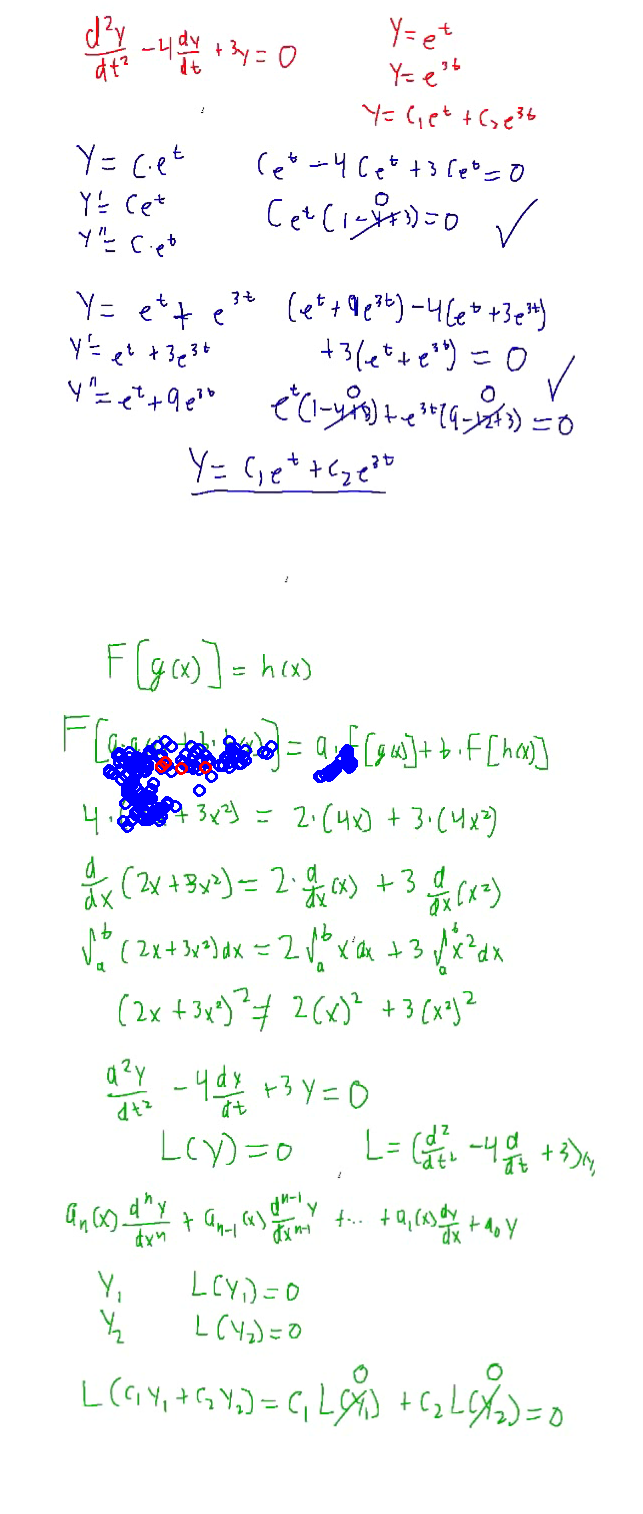 d²y/dt² - 4 dy/dt + 3y = 0
y = e^t
y = e^3t
y = C₁e^t + C₂e^3t
y = C·e^t
y' = Ce^t
y'' = C·e^t
Ce^t - 4Ce^t + 3Ce^t = 0
Ce^t(1-4+3) = 0 ✓
0
y = e^t + e^3t
y' = e^t + 3e^3t
y'' = e^t + 9e^3t
(e^t + 9e^3t) - 4(e^t + 3e^3t)
+3(e^t + e^3t) = 0 ✓
0 0
e^t(1-4+3) + e^3t(9-12+3) = 0
y = C₁e^t + C₂e^3t
F[g(x)] = h(x)
F[ ] = a· F[g(x)] + b·F[h(x)]
4· + 3x²) = 2·(4x) + 3·(4x²)
d/dx (2x + 3x²) = 2· d/dx (x) + 3 d/dx (x²)
∫_a^b (2x + 3x²)dx = 2∫_a^b x dx + 3∫_a^b x² dx
(2x + 3x²)² ≠ 2(x)² + 3(x²)²
d²y/dt² - 4 dy/dt + 3y = 0
L(y) = 0 L = (d²/dt² - 4 d/dt + 3)y
aₙ(x) dⁿy/dxⁿ + aₙ₋₁(x) dⁿ⁻¹y/dxⁿ⁻¹ + ... + a₁(x) dy/dx + a₀y
y₁ L(y₁) = 0
y₂ L(y₂) = 0
0 0
L(C₁y₁ + C₂y₂) = C₁L(y₁) + C₂L(y₂) = 0